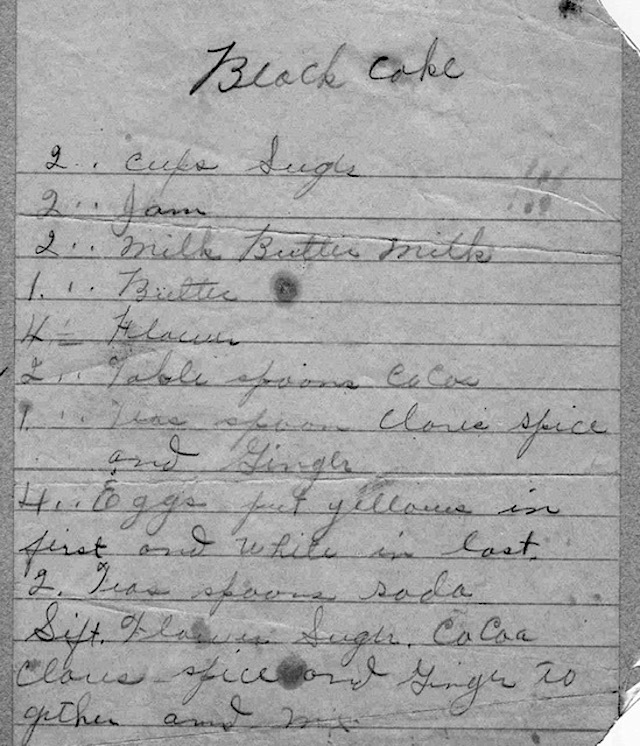 Black Cake
2 .. cups Sugar
2 .. Jam
2 .. milk Butter milk
1 .. Butter
4 = Flower
2 .. Table spoons CoCoa
1 .. Teas spoon Cloves spice
and Ginger
4 .. Eggs put yellows in
first and white in last.
2. Teas spoons soda
Sift. Flower Sugar. CoCoa
Cloves spice and Ginger to
gether and mix